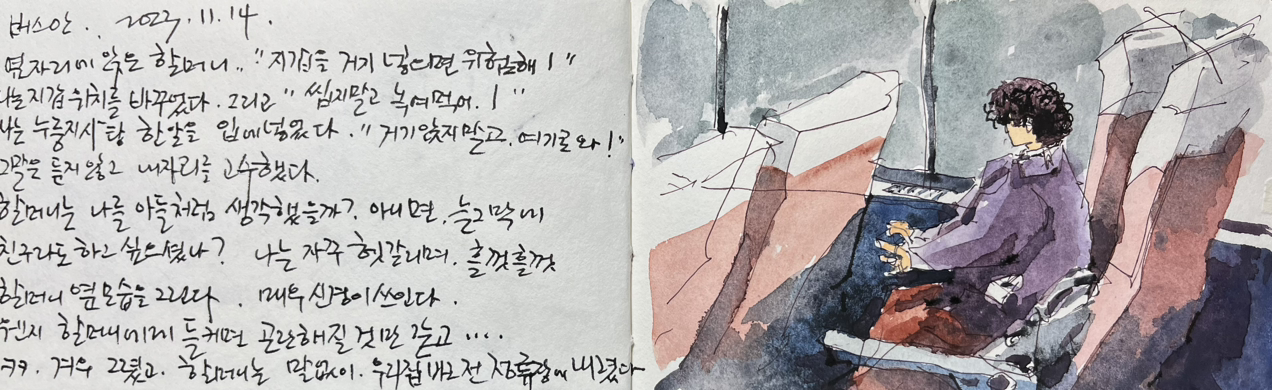 버스안.. 2023.11.14.
옆자리에 앉은 할머니.. "지갑을 거기 넣으면 위험해!"
나는 지갑 위치를 바꾸었다. 그리고 "씹지말고 녹여먹어.!"
나는 누룽지사탕 한알을 입에 넣었다. "거기 앉지말고. 여기로 와!"
그말은 듣지 않고 내자리를 고수했다.
할머니는 나를 아들처럼 생각했을까? 아니면, 늘그막에
친구라도 하고 싶으셨나? 나는 자꾸 헷갈리며. 흘껏흘껏
할머니 옆모습을 그린다. 매우 신경이 쓰인다.
웬지 할머니에게 들키면 곤란해질 것만 같고....
ㅋㅋ. 겨우 그렸고. 할머니는 말없이. 우리집 바로 전 정류장에 내렸다